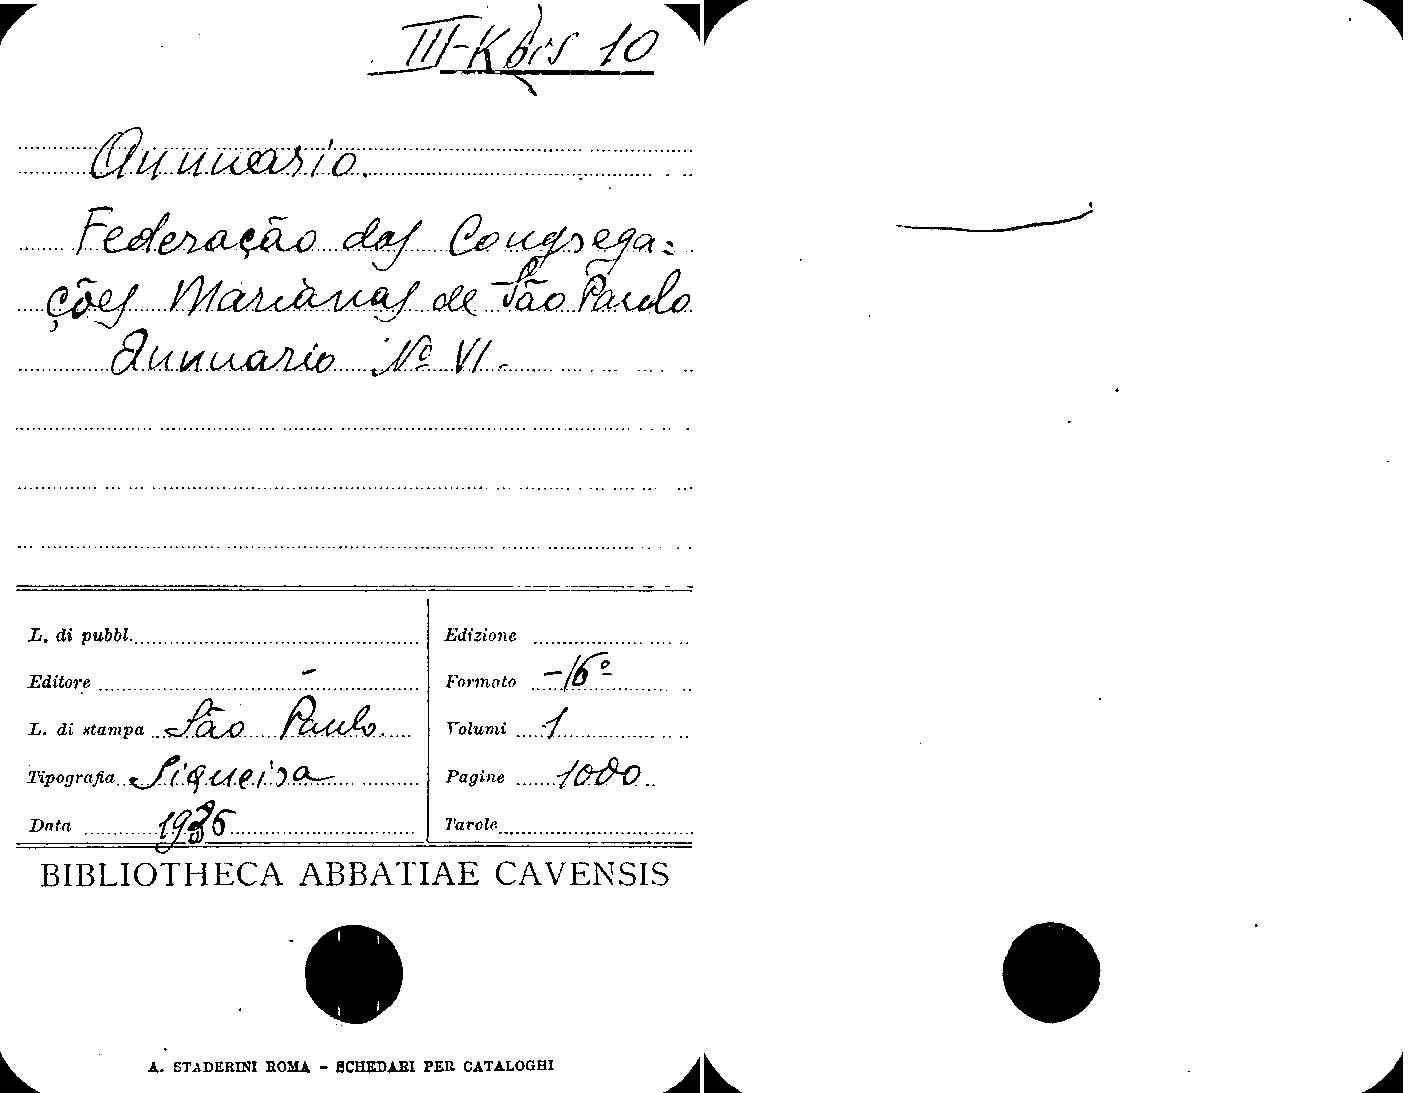 III-K bis 10
Annuario.
Federação das Congrega=
ções Marianas de São Paulo
Annuario Nº VI.
L. di pubbl.
Edizione
Editore -
Formato -16º
L. di stampa São Paulo.
Volumi 1
Tipografia Siqueira
Pagine 1000
Data 1936
Tavole
BIBLIOTHECA ABBATIAE CAVENSIS
A. STADERINI ROMA - SCHEDARI PER CATALOGHI